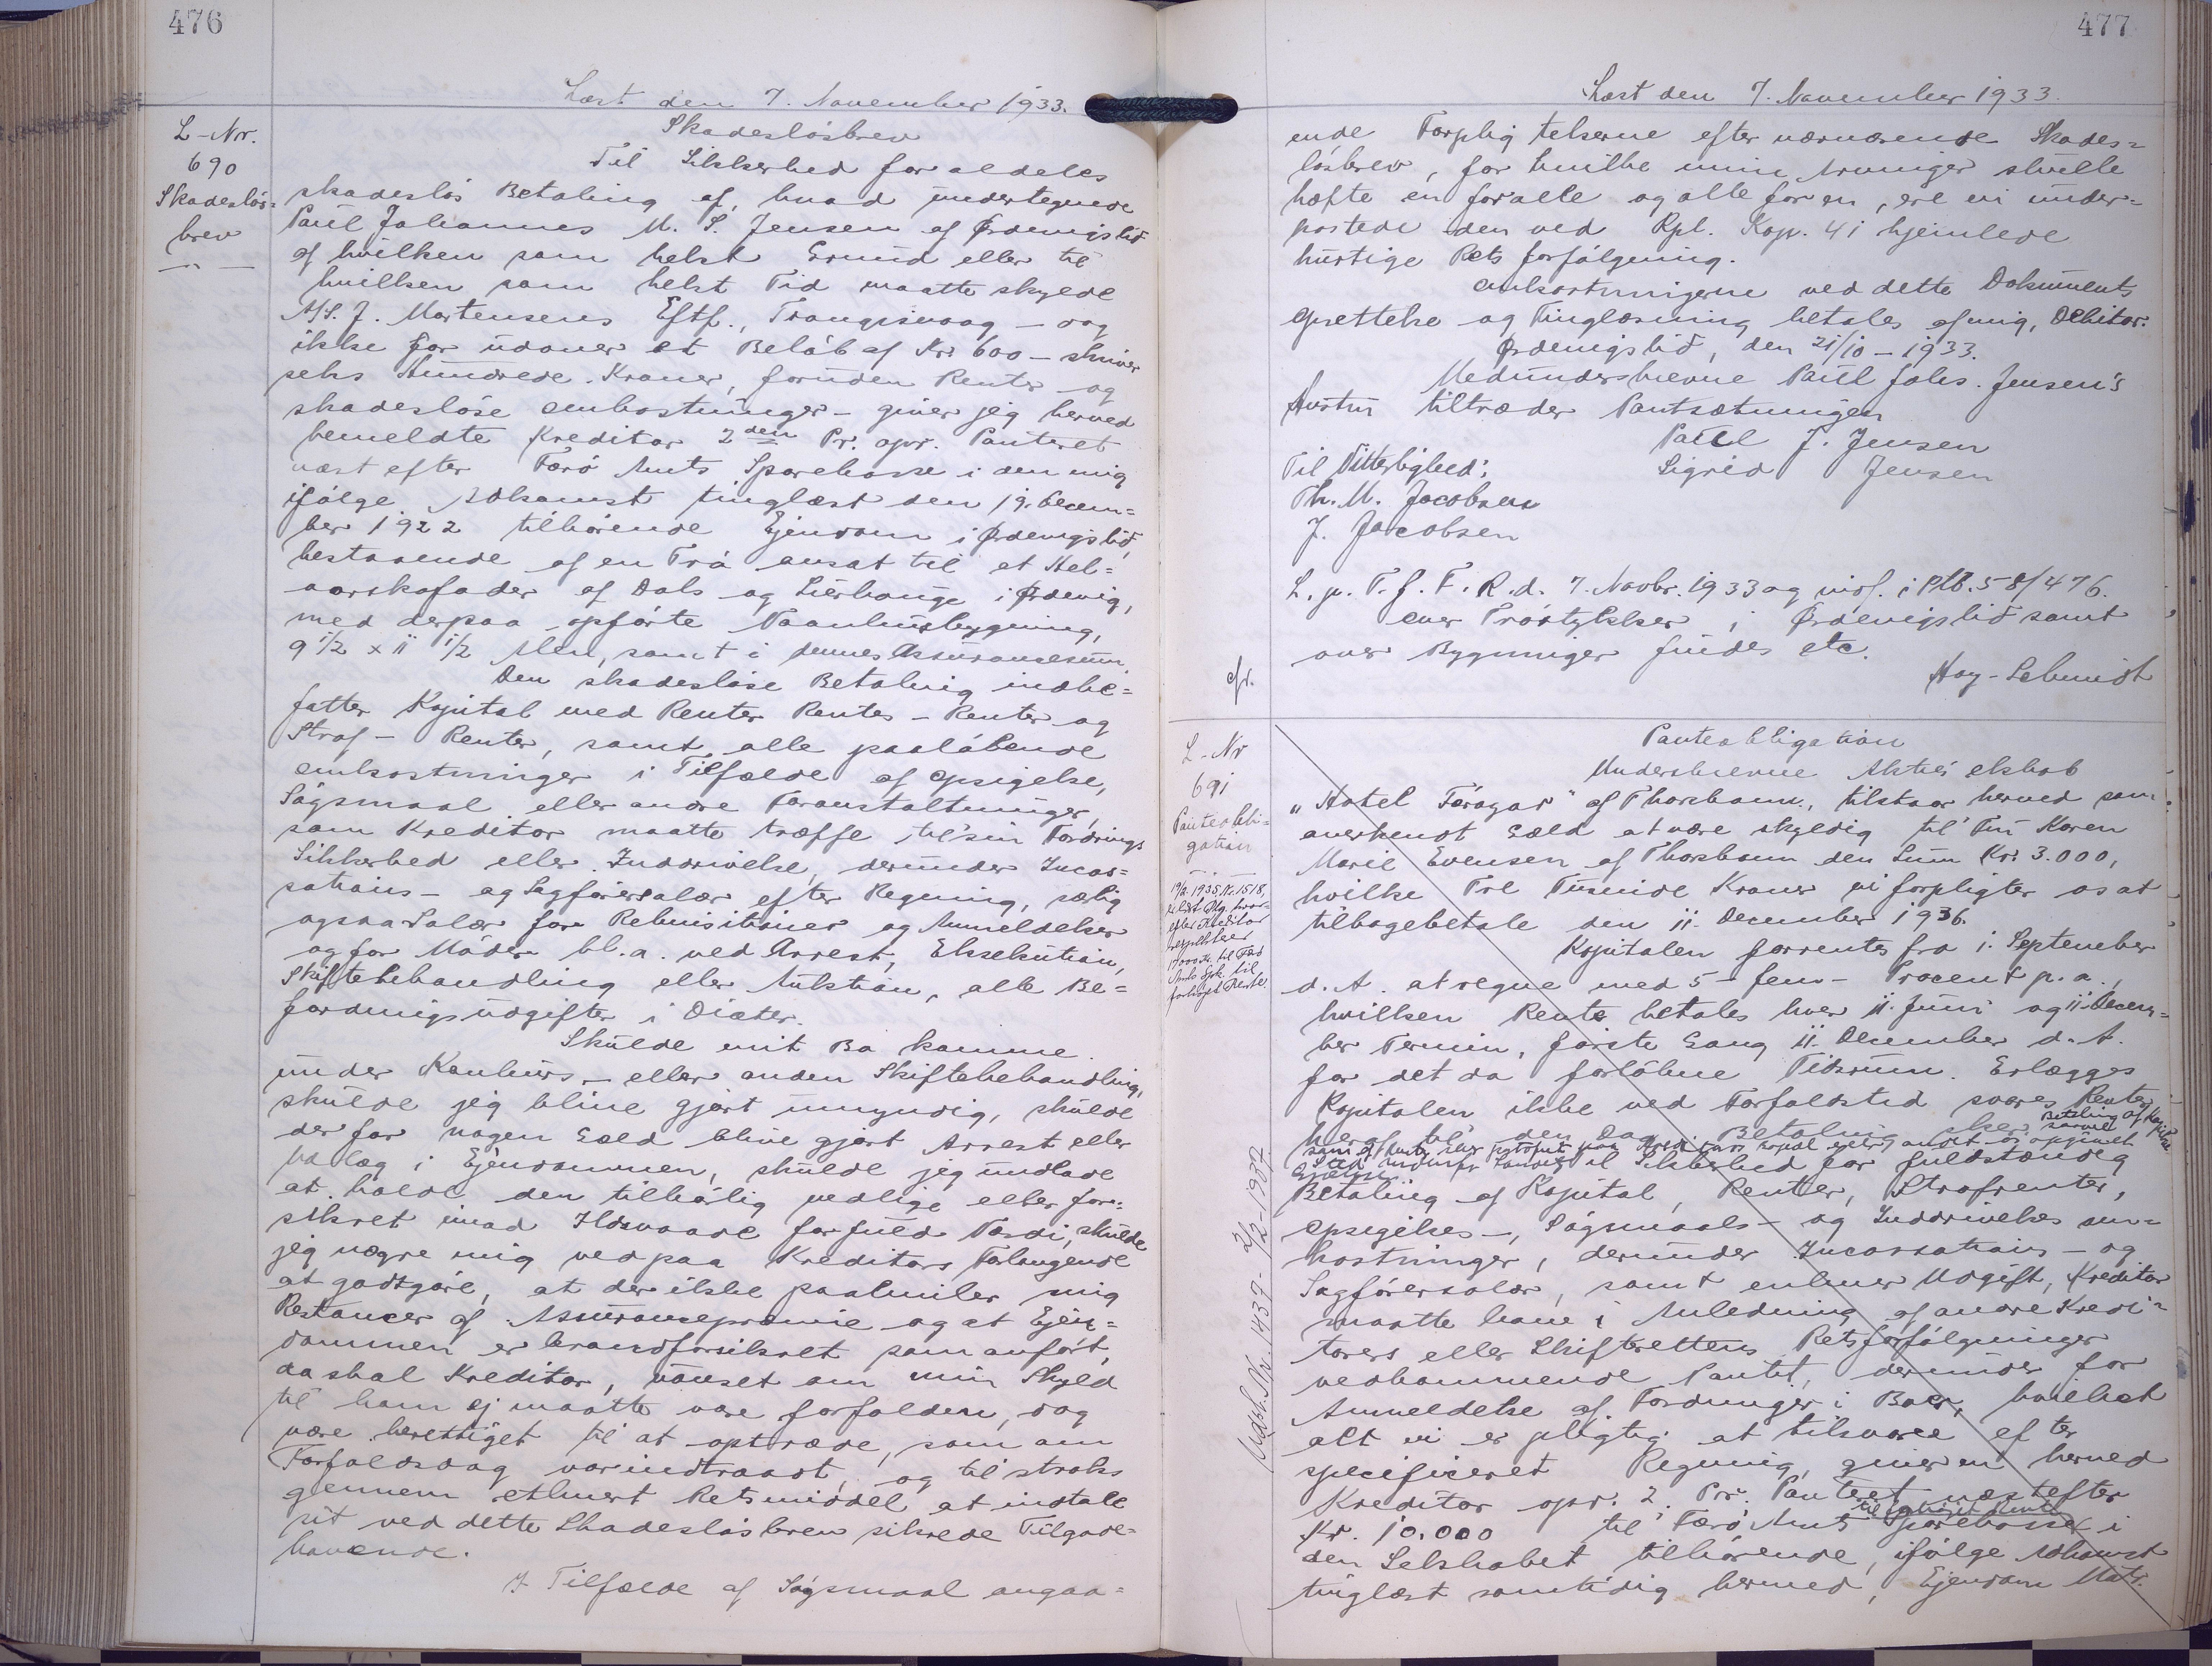 476
Læst den 7. November 1933.
L-Nr.
690
Skadesløs=
brev
Skadesløsbrev
Til Sikkerhed for aldeles
skadesløs Betaling af, hvad undertegnede
Paul Johannes M. S. Jensen af Ørdevigslid
af hvilken som helst Grund eller til
hvilken som helst Tid maatte skylde
A/S. J. Mortensens Eftf., Trangisvaag – dog
ikke for udover et Beløb af Kr. 600 – skriver
seks Hundrede Kroner, foruden Renter og
skadesløse Omkostninger – giver jeg herved
bemeldte Kreditor 2den Pr. opr. Panteret
næst efter Færø Amts Sparekasse i den mig
ifølge Adkomst tinglæst den 19. Decem=
ber 1922 tilhørende Ejendom i Ørdevigslid,
bestaaende af en Trø ansat til et Hel=
aarskofoder af Dals og Lierhauge i Ørdevig,
med derpaa opførte Vaanhusbygning,
9 1/2 x 11 1/2 Alen, samt i dennes Assurancesum.
Den skadesløse Betaling indbe=
fatter Kapital med Renter Rentes – Renter og
Straf – Renter, samt alle paaløbende
Omkostninger i Tilfælde af Opsigelse,
Søgsmaal eller andre Foranstaltninger,
som Kreditor maatte træffe til sin Fordrings
Sikkerhed eller Inddrivelse, derunder Incas=
sations – og Sagførersalær efter Regning, særlig
ogsaa Salær for Rekvisitioner og Anmeldelser
og for Møder bl. a. ved Arrest, Eksekution,
Skiftebehandling eller Auktion, alle Be=
fordringsudgifter i Diæter.
Skulde mit Bo komme
under Konkurs – eller anden Skiftebehandling,
skulde jeg blive gjort umyndig, skulde
der for nogen Gæld blive gjort Arrest eller
Udlæg i Ejendommen, skulde jeg undlade
at holde den tilbørlig vedlige eller for=
sikret imod Ildsvaade for fuld Værdi, skulde
jeg nægte mig ved paa Kreditors Forlangende
at godtgøre, at der ikke paahviler mig
Restancer af Assurancepræmie og at Ejen=
dommen er brandforsikret som anført,
da skal Kreditor, uanset om min Skyld
til ham ej maatte være forfalden, dog
være berettiget til at optræde, som om
Forfaldsdag var indtraadt, og til straks
gennem ethvert Retsmiddel at indtale
sit ved dette Skadesløsbrev sikrede Tilgode=
havende.
I Tilfælde af Søgsmaal angaa=
477
Læst den 7. November 1933.
ende Forpligtelserne efter nærværende Skades=
løsbrev, for hvilke mine Arvinger skulle
hæfte en for alle og alle for en, ere vi under=
kastede den ved Rpl. Kap. 41 hjemlede
hurtige Retsforfølgning.
Omkostningerne ved dette Dokuments
Oprettelse og Tinglæsning betales af mig, Debitor.
Ørdevigslid, den 21/10 – 1933.
Medunderskrevne Paul Johs. Jensen's
Hustru tiltræder Pantsætningen
Paul J. Jensen
Sigrid Jensen
Til Vitterlighed:
Th. M. Jacobsen
J. Jacobsen
L. p. T. f. F. R. d. 7. Novbr. 1933 og indf. i Ptb. 58/476.
over Trøstykker i Ørdevigslid samt
over Bygninger findes etc.
cfr.
Høy-Schmidt
L-Nr
691
Panteobli=
gation
Panteobligation
Underskrevne Aktieselskab
"Hotel Føroyar" af Thorshavn, tilstaar herved som
anerkendt Gæld at være skyldig til Fru Karen
Marie Evensen af Thorshavn den Sum Kr. 3.000,
hvilke Tre Tusinde Kroner vi forpligter os at
tilbagebetale den 11. December 1936.
Kapitalen forrentes fra 1. September
d. A. at regne med 5 – fem – Procent p. a.,
hvilken Rente betales hver 11. Juni og 11. Decem=
ber Termin, første Gang 11. December d. A.
for det da forløbne Tidsrum. Erlægges
Kapitalen ikke ved Forfaldstid svares Renter
heraf til den Dag Betaling sker, Betaling af Kapital
Til Sikkerhed for fuldstændig
Betaling af Kapital, Renter, Strafrenter,
Opsigelses –, Søgsmaals – og Inddrivelses om=
kostninger, derunder Incassations – og
Sagførersalær, samt enhver Udgift, Kreditor
maatte have i Anledning af andre Kredi=
torers eller Skifterettens Retsforfølgninger
vedkommende Pantet, derunder for
Anmeldelse af Fordringer i Boer, hvilket
alt vi er pligtig at tilsvare efter
specificeret Regning, giver vi herved
Kreditor opr. 2. Pr. Panteret næstefter
Kr. 10.000 til Færø Amts Sparekasse i
den Selskabet tilhørende, ifølge Adkomst
tinglæst samtidig hermed, Ejendom Matr.
Udsl. Nr. 1439 – 2/12 – 1937